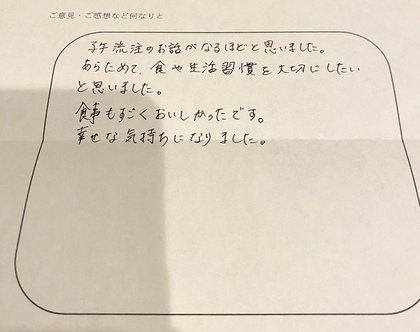 ご意見・ご感想など何なりと
子午流注のお話がなるほどと思いました。
あらためて、食や生活習慣を大切にしたい
と思いました。
食事もすごくおいしかったです。
幸せな気持ちになりました。